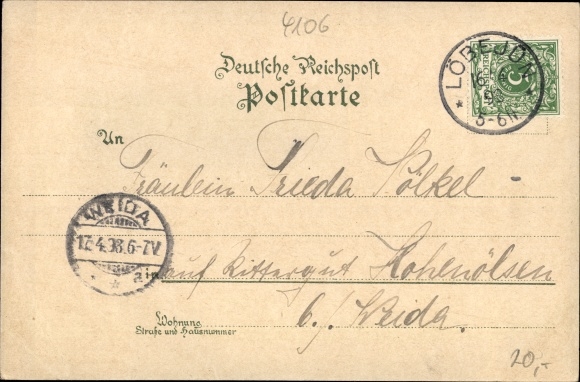 4106
Deutsche Reichspost
Postkarte
LÖBEJÜN
5-6N
An
Fräulein Frieda Pölkel
WEIDA
17.4.98.6-7V
in auf Rittergut Hohenölsen
b./ Weida.
Wohnung
Straße und Hausnummer
20,-